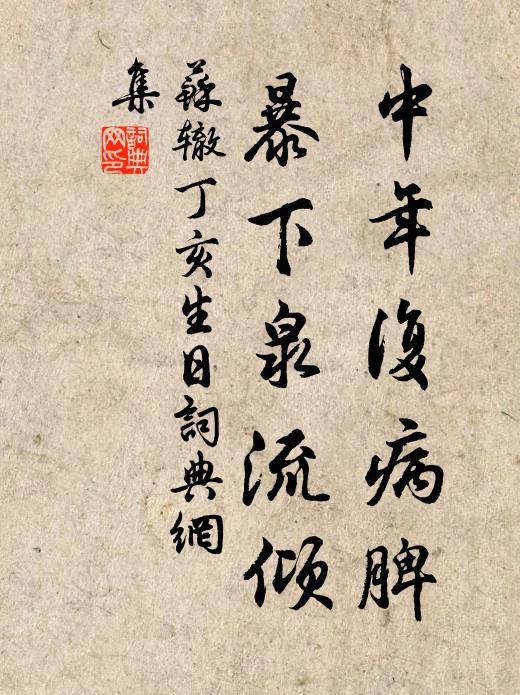 中年復病脾
暴下泉流傾
蘇辙丁亥生日詞典網
集
詞典
网印